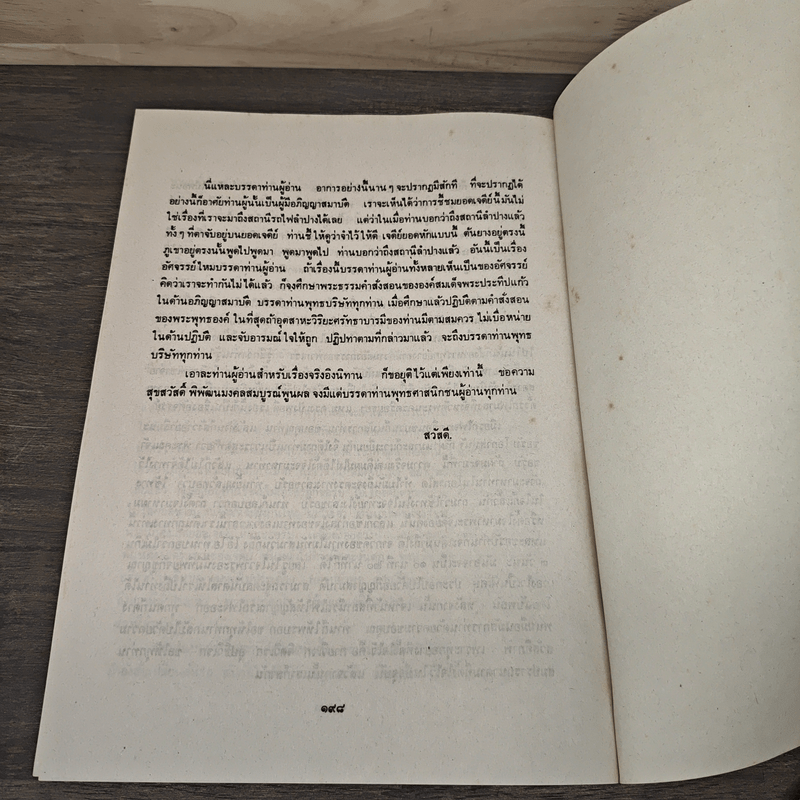 นี่แหละบรรดาท่านผู้อ่าน อาการอย่างนี้นาน ๆ จะปรากฏมีสักที ที่จะปรากฏได้
อย่างนี้ก็อาศัยท่านผู้นั้นเป็นผู้มีอภิญญาสมาบัติ เราจะเห็นได้ว่าการชี้ชมยอดเจดีย์นี้มันไม่
ใช่เรื่องที่เราจะมาถึงสถานีรถไฟลำปางได้เลย แต่ว่าในเมื่อท่านบอกว่าถึงสถานีลำปางแล้ว
ทั้ง ๆ ที่ตาจับอยู่บนยอดเจดีย์ ท่านชี้ให้ดูว่าจำไว้ให้ดี เจดีย์ยอดหักแบบนี้ ต้นยางอยู่ตรงนี้
ภูเขาอยู่ตรงนั้นพูดไปพูดมา พูดมาพูดไป ท่านบอกว่าถึงสถานีลำปางแล้ว อันนี้เป็นเรื่อง
อัศจรรย์ไหมบรรดาท่านผู้อ่าน ถ้าเรื่องนี้บรรดาท่านผู้อ่านทั้งหลายเห็นเป็นของอัศจรรย์
คิดว่าเราจะทำกันไม่ได้แล้ว ก็จงศึกษาพระธรรมคำสั่งสอนขององค์สมเด็จพระประทีปแก้ว
ในด้านอภิญญาสมาบัติ บรรดาท่านพุทธบริษัททุกท่าน เมื่อศึกษาแล้วปฏิบัติตามคำสั่งสอน
ของพระพุทธองค์ ในที่สุดถ้าอุตสาหะวิริยะศรัทธาบารมีของท่านมีตามสมควร ไม่เบื่อหน่าย
ในด้านปฏิบัติ และจับอารมณ์ใจให้ถูก ปฏิปทาตามที่กล่าวมาแล้ว จะถึงบรรดาท่านพุทธ
บริษัททุกท่าน
เอาละท่านผู้อ่านสำหรับเรื่องจริงอิงนิทาน ก็ขอยุติไว้แต่เพียงเท่านี้ ขอความ
สุขสวัสดิ์ พิพัฒนมงคลสมบูรณ์พูนผล จงมีแด่บรรดาท่านพุทธศาสนิกชนผู้อ่านทุกท่าน
สวัสดี.
๑๙๘